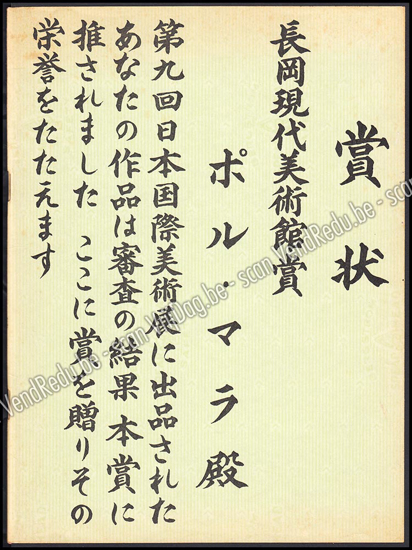 賞状
長岡現代美術館賞
ポル・マラ殿
第九回日本国際美術展に出品された
あなたの作品は審査の結果 本賞に
推されました ここに賞を贈りその
栄誉をたたえます
VendRedu.be - scan VenDag.be - scan VendRedu.be - scan